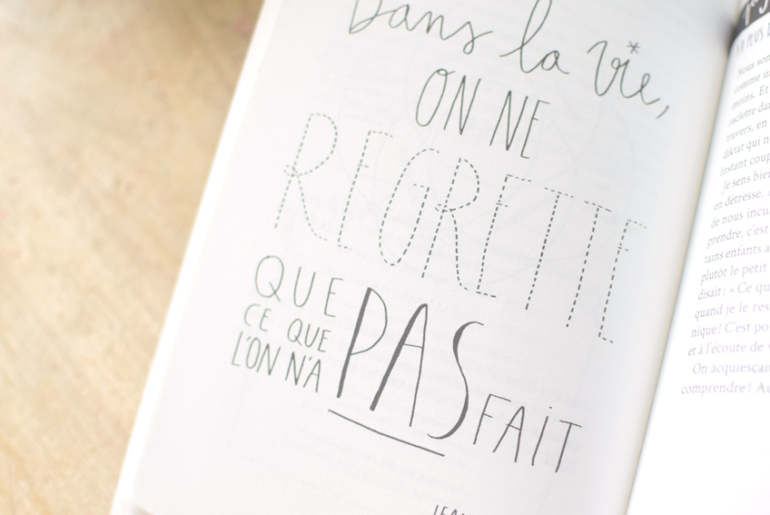 Dans la vie,
ON NE
REGRETTE
QUE
CE QUE
L'ON N'A
PAS FAIT
JEAN
PLUS D
Nous son
comme u
moins. Et
raclette da
travers, en
diktat qui n
instant coup
Je sens bie
en détresse.
de nous incu
prendre, c'est
tains enfants a
plutôt le petit
disait : « Ce qu
quand je le res
nique ! C'est po
et à l'écoute de v
On acquiesçai
comprendre ! Au